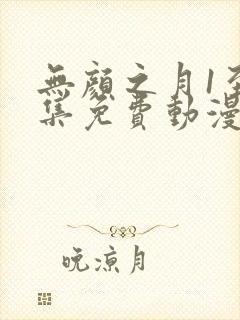 無顏之月1至
集免費動漫
晚涼月